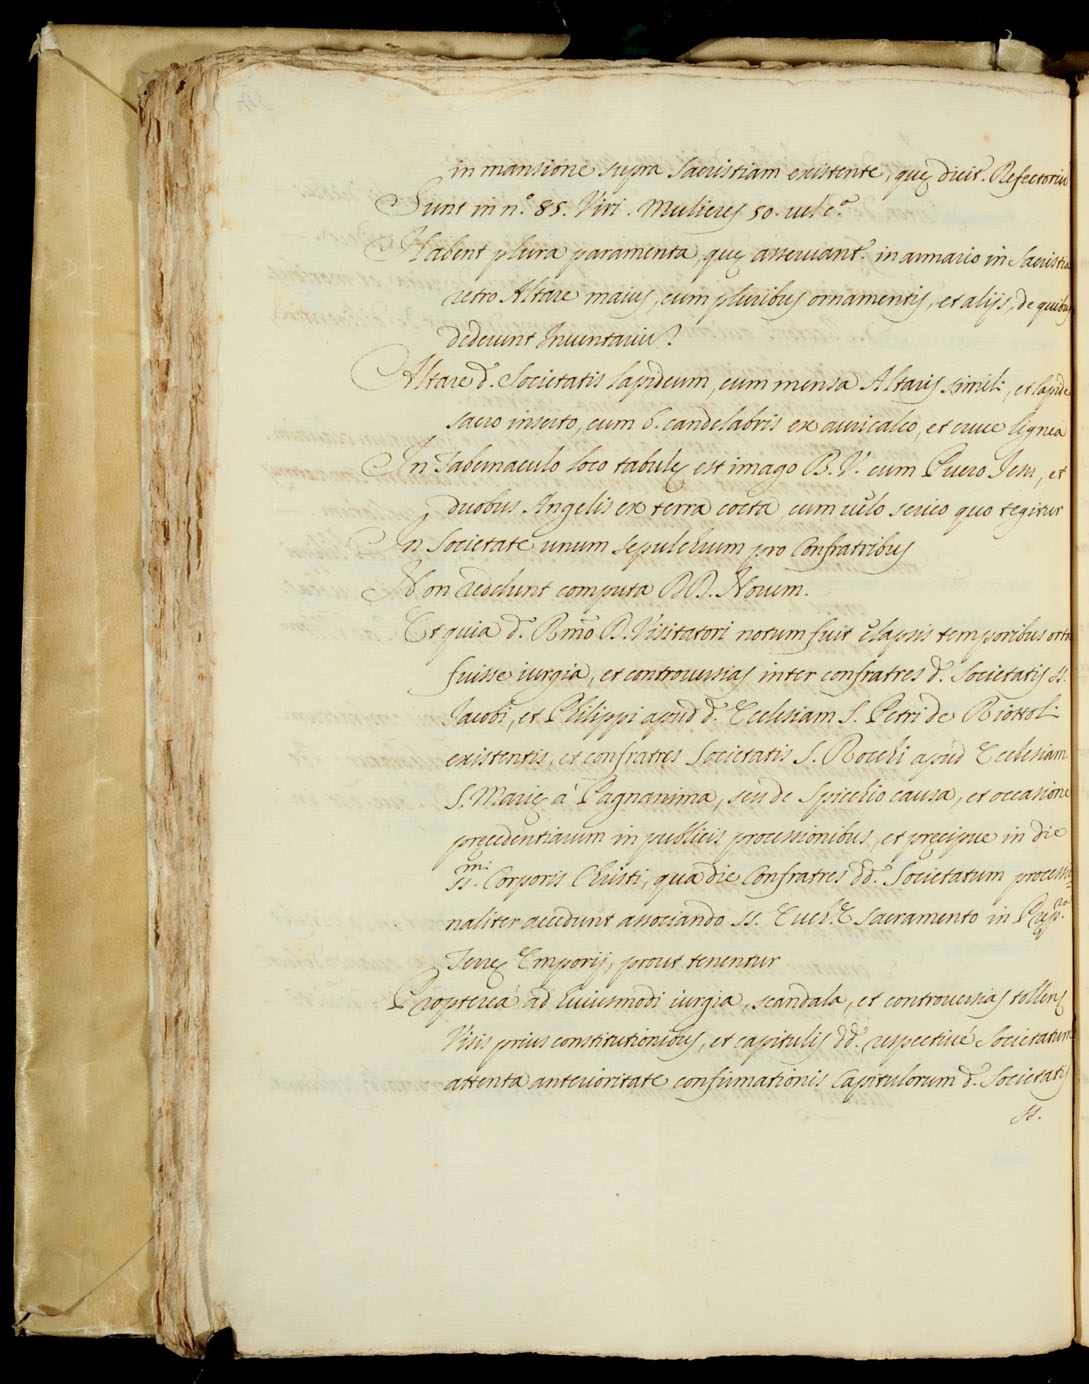 in mansione supra Sacristiam existente, quę dicit.r Refectoriũ
Sunt in n.o 85. Viri. Mulieres 50. vel c.a
Habent plura paramenta, quę asservant.r in armario in Sacristia
retro Altare maius, cum pluribus ornamentis, et alijs, de quibus
dederunt Inventariũ
Altare d. Societatis lapideum, cum mensa Altaris simili, et lapide
sacro inserto, cum 6. candelabris ex auricalco, et cruce lignea
In Tabernaculo loco tabulę est imago B. V. cum Puero Jesu, et
duobus Angelis ex terra cocta cum velo serico quo tegitur
In Societate unum sepulchrum pro Confratribus
Non reddunt computa DD. Novem.
Et quia d. Rmo D. Visitatori notum fuit elapsis temporibus orta
fuisse iurgia, et controversias inter confratres d. Societatis SS.
Jacobi, et Philippi apud d. Ecclesiam S. Petri de Riottoli
existentis, et confratres Societatis S. Rocchi apud Ecclesiam
S. Marię à Pagnanima, seu de Spicchio causa, et occasione
pręcedentiarum in publicis processionibus, et pręcipue in die
SS.mi Corporis Christi, qua die Confratres dd. Societatum processio
naliter accedunt associando SS. Euch.ę Sacramento in
Terrę Emporij, prout tenentur
Propterea ad huiusmodi iurgia, scandala, et controversias tollens
Visis prius constitutionibus, et capitulis dd. respectivé Societatum
attenta anterioritate confirmationis Capitulorum d. Societatis
SS.